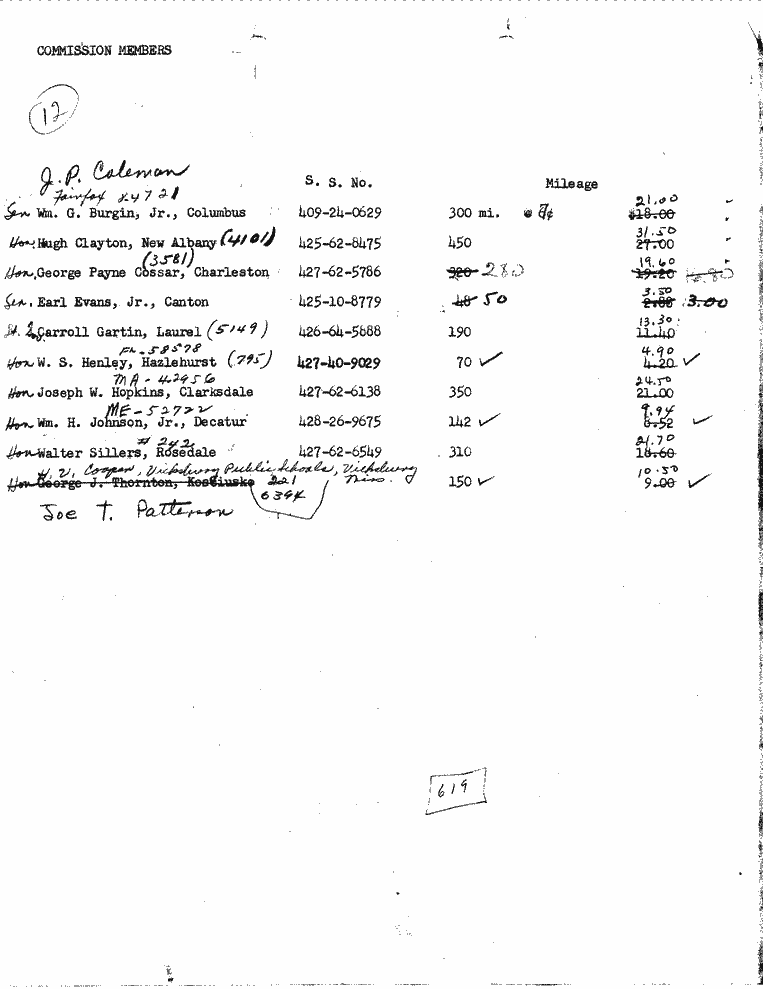 COMMISSION MEMBERS
12
J. P. Coleman S. S. No. Mileage
Fairfax X4721 21.00
Sen Wm. G. Burgin, Jr., Columbus 409-24-0629 300 mi. @ 7¢ $18.00
31.50
Hon. Hugh Clayton, New Albany (4101) 425-62-8475 450 27.00
(3581) 19.60
Hon. George Payne Cossar, Charleston 427-62-5786 320 280 19.20 16.80
3.50
Sen. Earl Evans, Jr., Canton 425-10-8779 48 50 2.88 3.00
13.30
Carroll Gartin, Laurel (5149) 426-64-5688 190 11.40
FL-58578 4.90
Hon W. S. Henley, Hazlehurst (795) 427-40-9029 70 ✓ 4.20 ✓
MA-42956 24.50
Hon Joseph W. Hopkins, Clarksdale 427-62-6138 350 21.00
ME-52722 9.94
Hon Wm. H. Johnson, Jr., Decatur 428-26-9675 142 ✓ 8.52 ✓
# 242 21.70
Hon Walter Sillers, Rosedale 427-62-6549 310 18.60
H. V. Cooper, Vicksburg Public Schools, Vicksburg Miss. 10.50
Hon George J. Thornton, Kosciusko 221 150 ✓ 9.00 ✓
6394
Joe T. Patterson
619